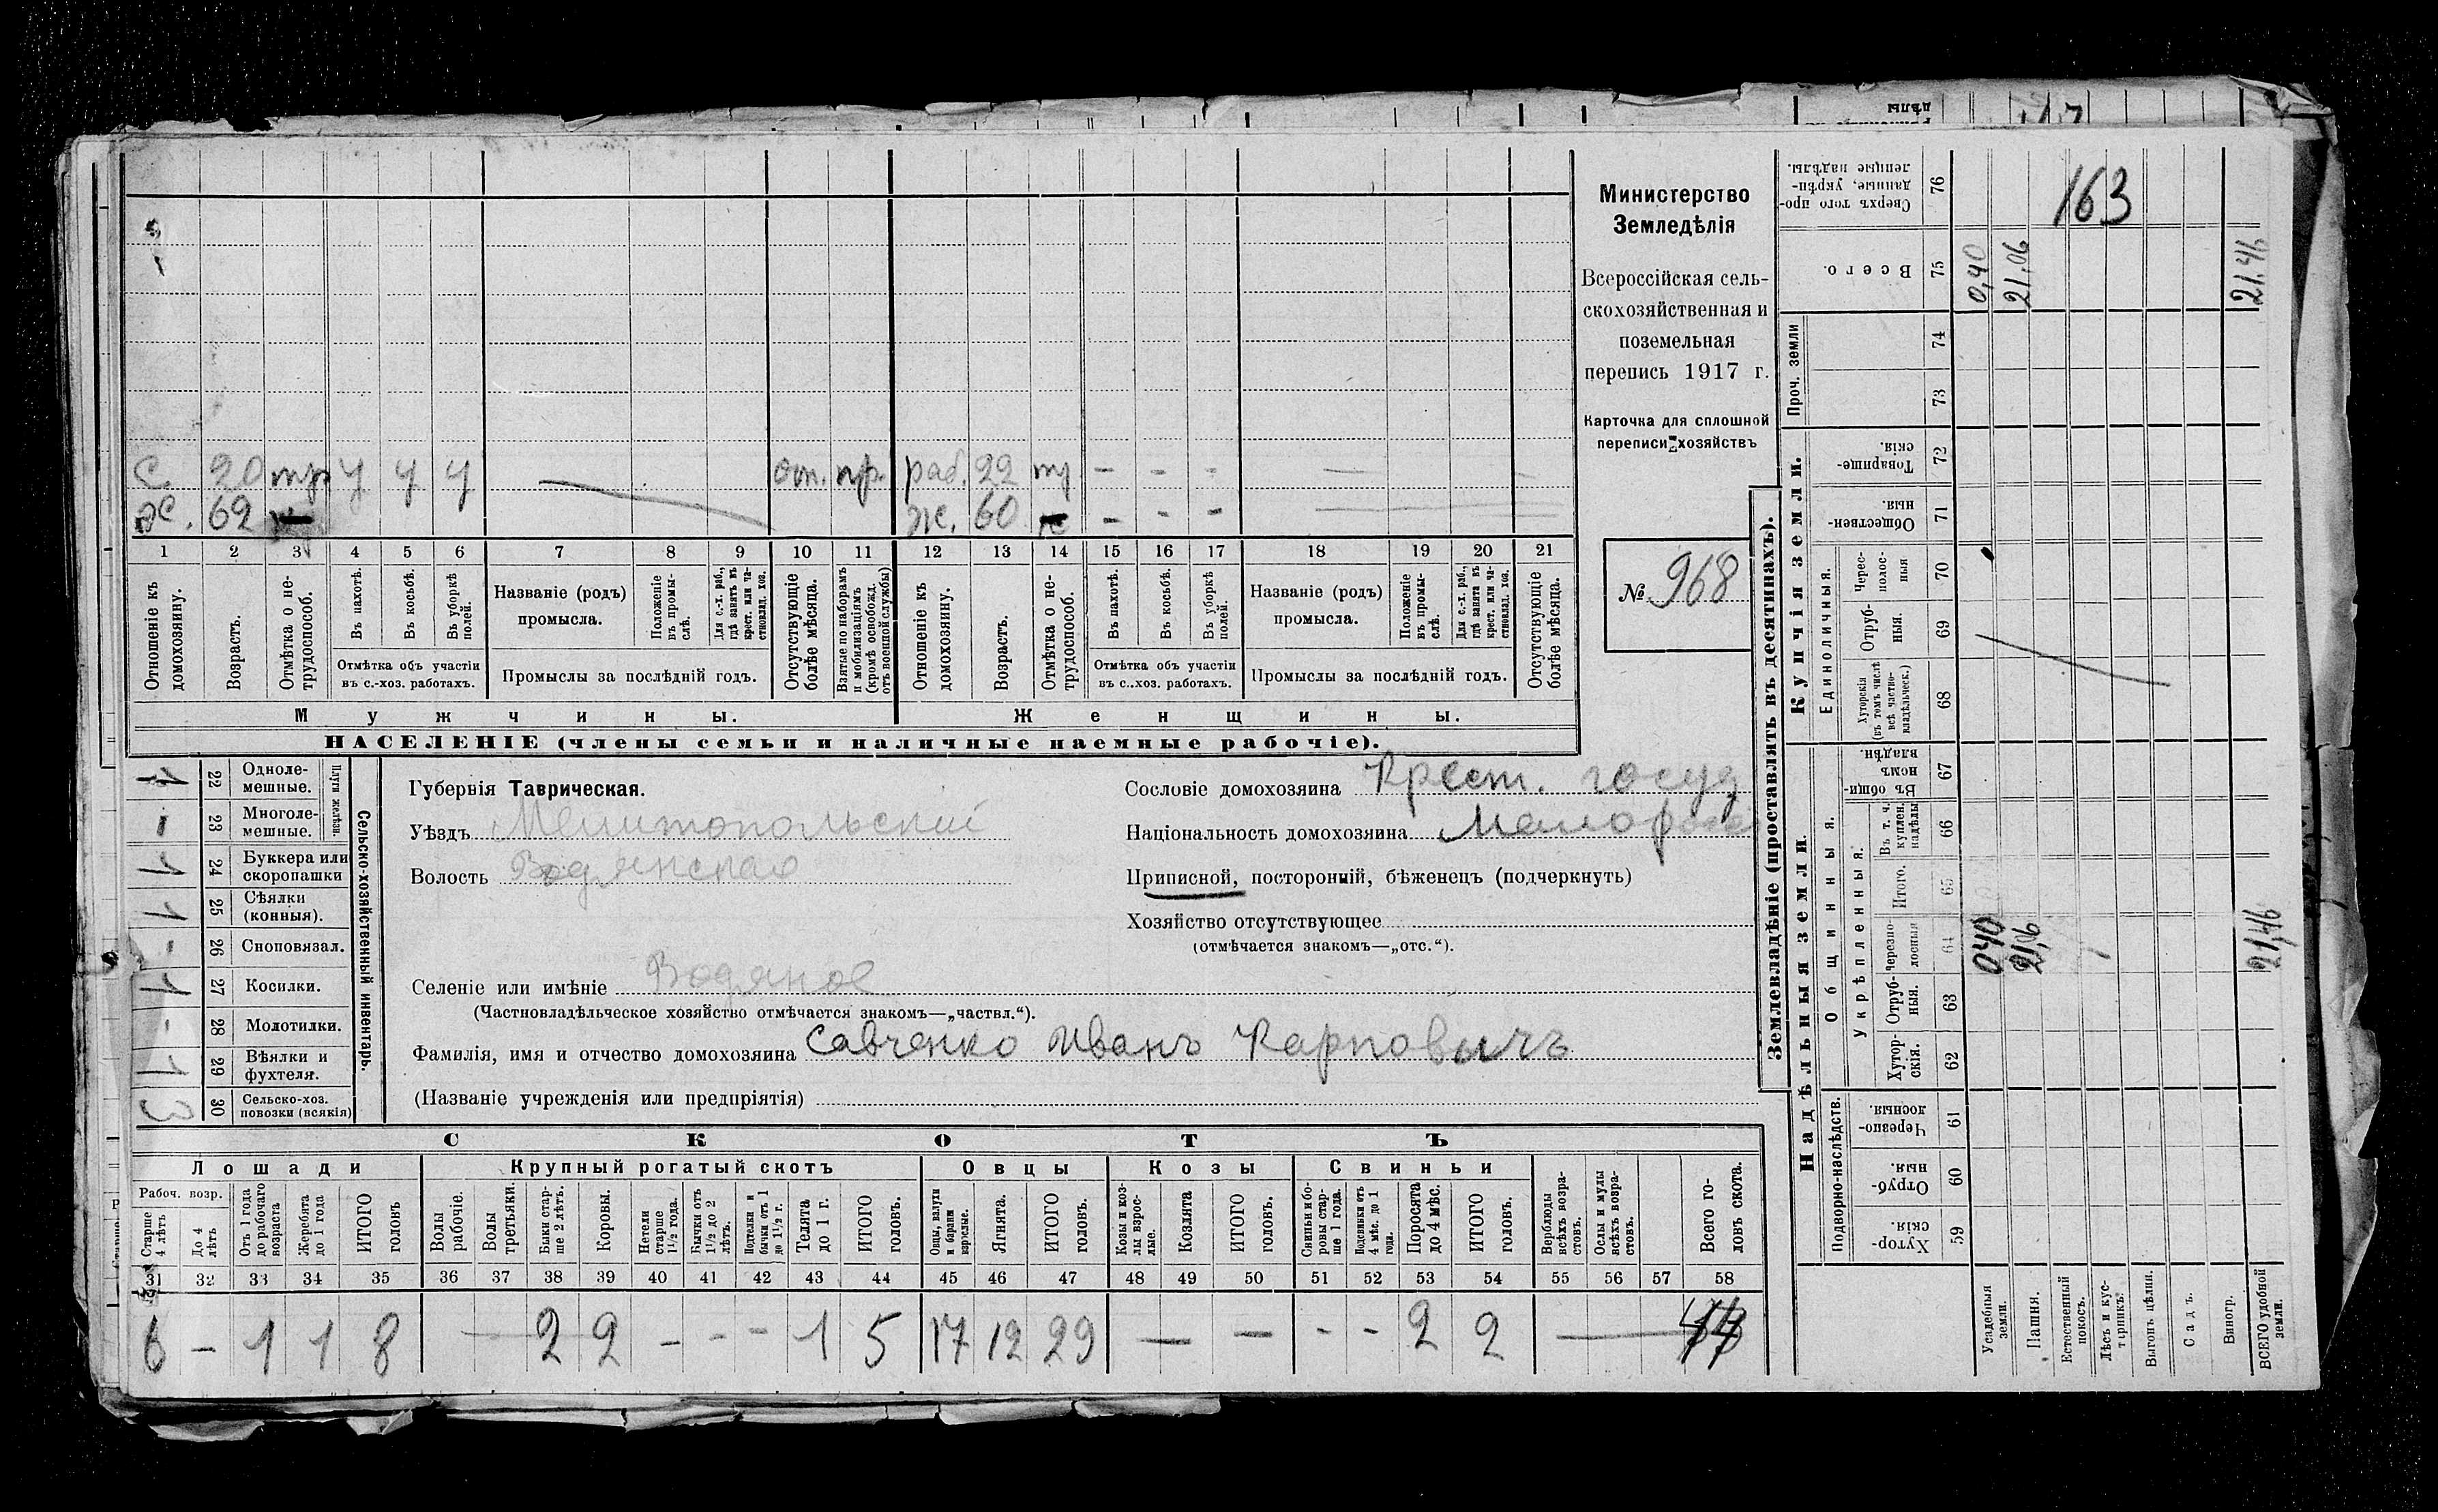 Министерство
Земледѣлія
Всероссійская сель-
скохозяйственная и
поземельная
перепись 1917 г.
Карточка для сплошной
переписи хозяйствъ
№ 968
С. 20 тр у у у от. пр. раб. 22 - - - -
Ж. 62 Ж. 60 - - -
1 2 3 4 5 6 7 8 9 10 11 12 13 14 15 16 17 18 19 20 21
Отношеніе къ домохозяину.
Возрастъ.
Отмѣтка о не-трудоспособ.
Въ пахотѣ.
Въ косьбѣ.
Въ уборкѣ полей.
Отмѣтка объ участіи
въ с.-хоз. работахъ.
Названіе (родъ)
промысла.
Положеніе въ промы-слѣ.
Для с.-х. раб., гдѣ занятъ въ крест. или ча-стновлад. хоз.
Промыслы за послѣдній годъ.
Отсутствующіе болѣе мѣсяца.
Взятые по наборамъ и мобилизаціямъ (кромѣ освобожд. отъ военной службы)
Отношеніе къ домохозяину.
Возрастъ.
Отмѣтка о не-трудоспособ.
Въ пахотѣ.
Въ косьбѣ.
Въ уборкѣ полей.
Отмѣтка объ участіи
въ с..хоз. работахъ.
Названіе (родъ)
промысла.
Положеніе въ промы-слѣ.
Для с.-х. раб., гдѣ занята въ крест. или ча-стновлад. хоз.
Промыслы за послѣдній годъ.
Отсутствующіе болѣе мѣсяца.
Мужчины. Женщины.
НАСЕЛЕНІЕ (члены семьи и наличные наемные рабочіе).
Сельско-хозяйственный инвентарь.
Плуги желѣзн.
1 22 Одноле-мешные.
- 23 Многоле-мешные.
1 24 Буккера или скоропашки
1 25 Сѣялки (конныя).
- 26 Сноповязал.
1 27 Косилки.
- 28 Молотилки.
1 29 Вѣялки и фухтеля.
3 30 Сельско-хоз. повозки (всякія)
Губернія Таврическая.
Уѣздъ Мелитопольскій
Волость Водянская
Сословіе домохозяина Крест. госуд
Національность домохозяина Малорос
Приписной, посторонній, бѣженецъ (подчеркнуть)
Хозяйство отсутствующее
(отмѣчается знакомъ—„отс.“).
Селеніе или имѣніе Водяное
(Частновладѣльческое хозяйство отмѣчается знакомъ—„частвл.“).
Фамилія, имя и отчество домохозяина Савченко Иванъ Карповичъ
(Названіе учрежденія или предпріятія)
СКОТЪ
Лошади Крупный рогатый скотъ Овцы Козы Свиньи
Рабоч. возр.
Старше 4 лѣтъ
До 4 лѣтъ
Отъ 1 года до рабочаго возраста
Жеребята до 1 года
ИТОГО головъ
Волы рабочіе.
Волы третьяки.
Быки стар-ше 2 лѣтъ.
Коровы.
Нетели старше 1½ года.
Бычки отъ 1½ до 2 лѣтъ.
Подтелки и бычки отъ 1 до 1½ г.
Телята до 1 г.
ИТОГО головъ.
Овцы, валухи и бараны взрослые.
Ягнята.
ИТОГО головъ.
Козы и коз-лы взрос-лые.
Козлята
ИТОГО головъ.
Свиньи и бо-ровы стар-ше 1 года.
Подсвинки отъ 4 мѣс. до 1 года.
Поросята до 4 мѣс.
ИТОГО головъ.
Верблюды всѣхъ возра-стовъ.
Ослы и мулы всѣхъ возра-стовъ.
Всего го-ловъ скота.
31 32 33 34 35 36 37 38 39 40 41 42 43 44 45 46 47 48 49 50 51 52 53 54 55 56 57 58
6 - 1 1 8 - 2 2 - - - 1 5 17 12 29 - - - - 2 2 -
Землевладѣніе (проставлять въ десятинахъ).
163
Сверхъ того про-данные, укрѣп-ленные надѣлы. 76
Всего. 75 0,40 21,06 21,46
Проч. земли 74 73
Купчія земли.
Товарище-скія. 72
Обществен-ныя. 71
Единоличныя.
Черес-полос-ныя 70
Отруб-ныя. 69
Хуторскія (въ томъ числѣ всѣ частно-владѣльческ.) 68
Надѣльныя земли.
Общинныя.
Въ общи-номъ владѣн. 67
Укрѣпленныя.
Въ т. ч. куплен. надѣлы 66
Итого. 65
Черезпо-лосныя 64 0,40 21,06 21,46
Отруб-ныя. 63
Хутор-скія. 62
Подворно-наслѣдств.
Черезпо-лосныя. 61
Отруб-ныя. 60
Хутор-скія. 59
Усадебныя земли.
Пашня.
Естественный покосъ.
Лѣсъ и кус-тарникъ.
Выгонъ, цѣлина.
Садъ.
Виногр.
ВСЕГО удобной земли.